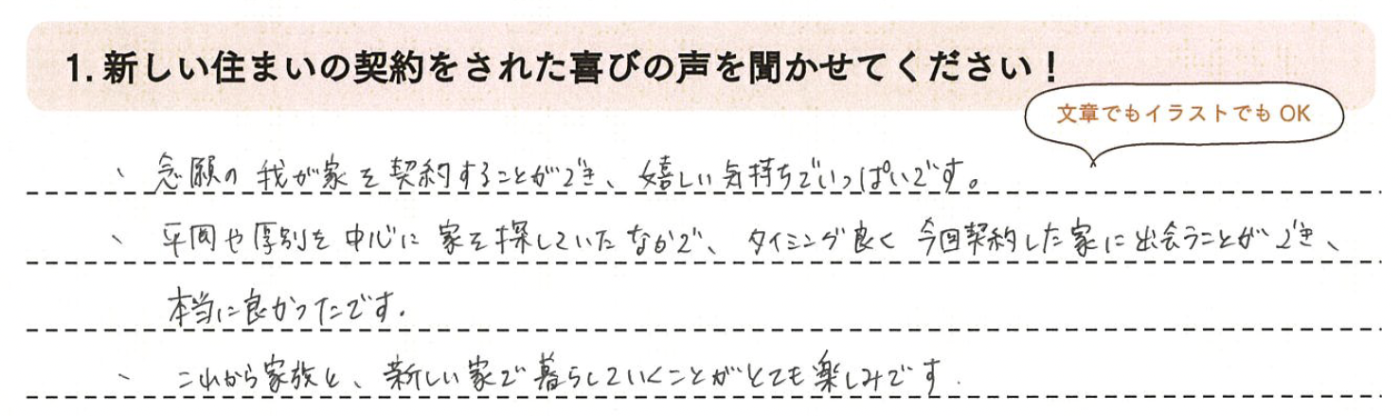 1. 新しい住まいの契約をされた喜びの声を聞かせてください！
文章でもイラストでも OK
、念願の我が家を契約することができ、嬉しい気持ちでいっぱいです。
、平岡や厚別を中心に家を探していたなかで、タイミング良く今回契約した家に出会うことができ、
本当に良かったです。
、これから家族と、新しい家で暮らしていくことがとても楽しみです.